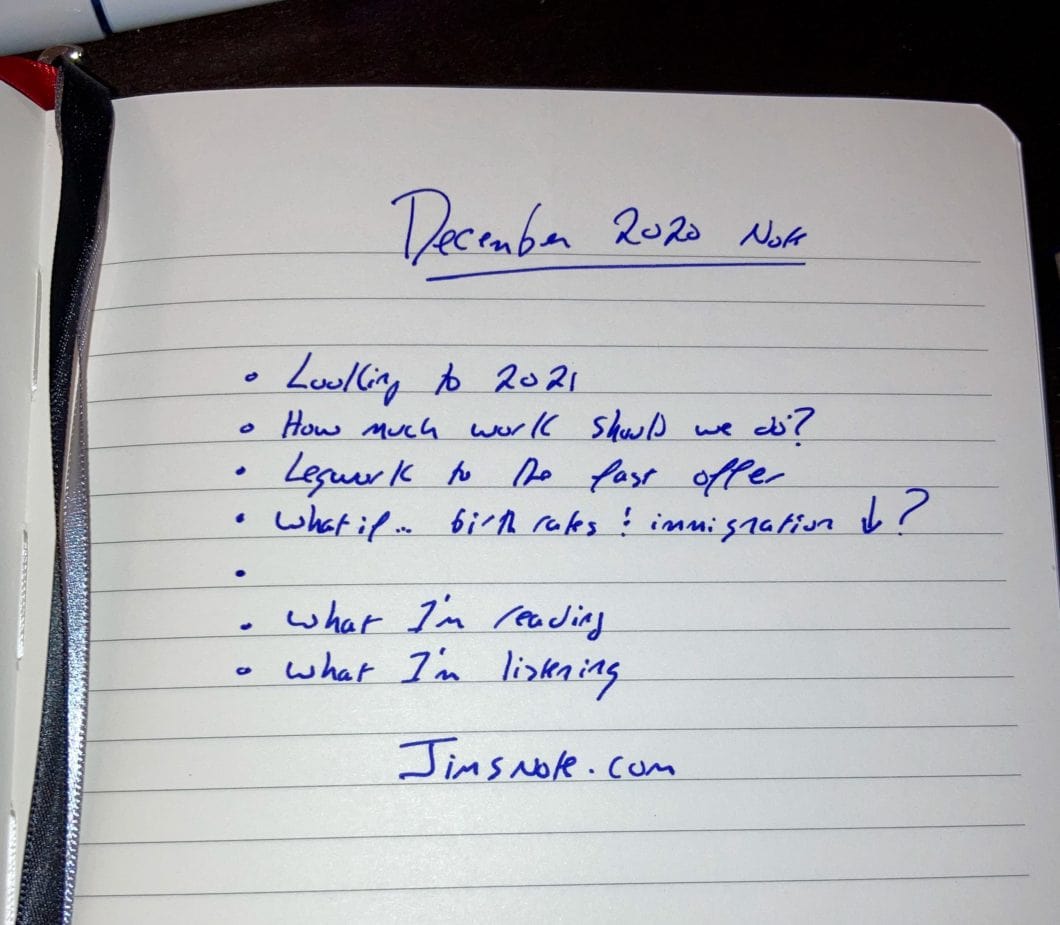 December 2020 Note
• Looking to 2021
• How much work should we do?
• Legwork to the fast offer
• What if... birth rates & immigration ↓?
•
• what I'm reading
• what I'm listening
JimsNote.com